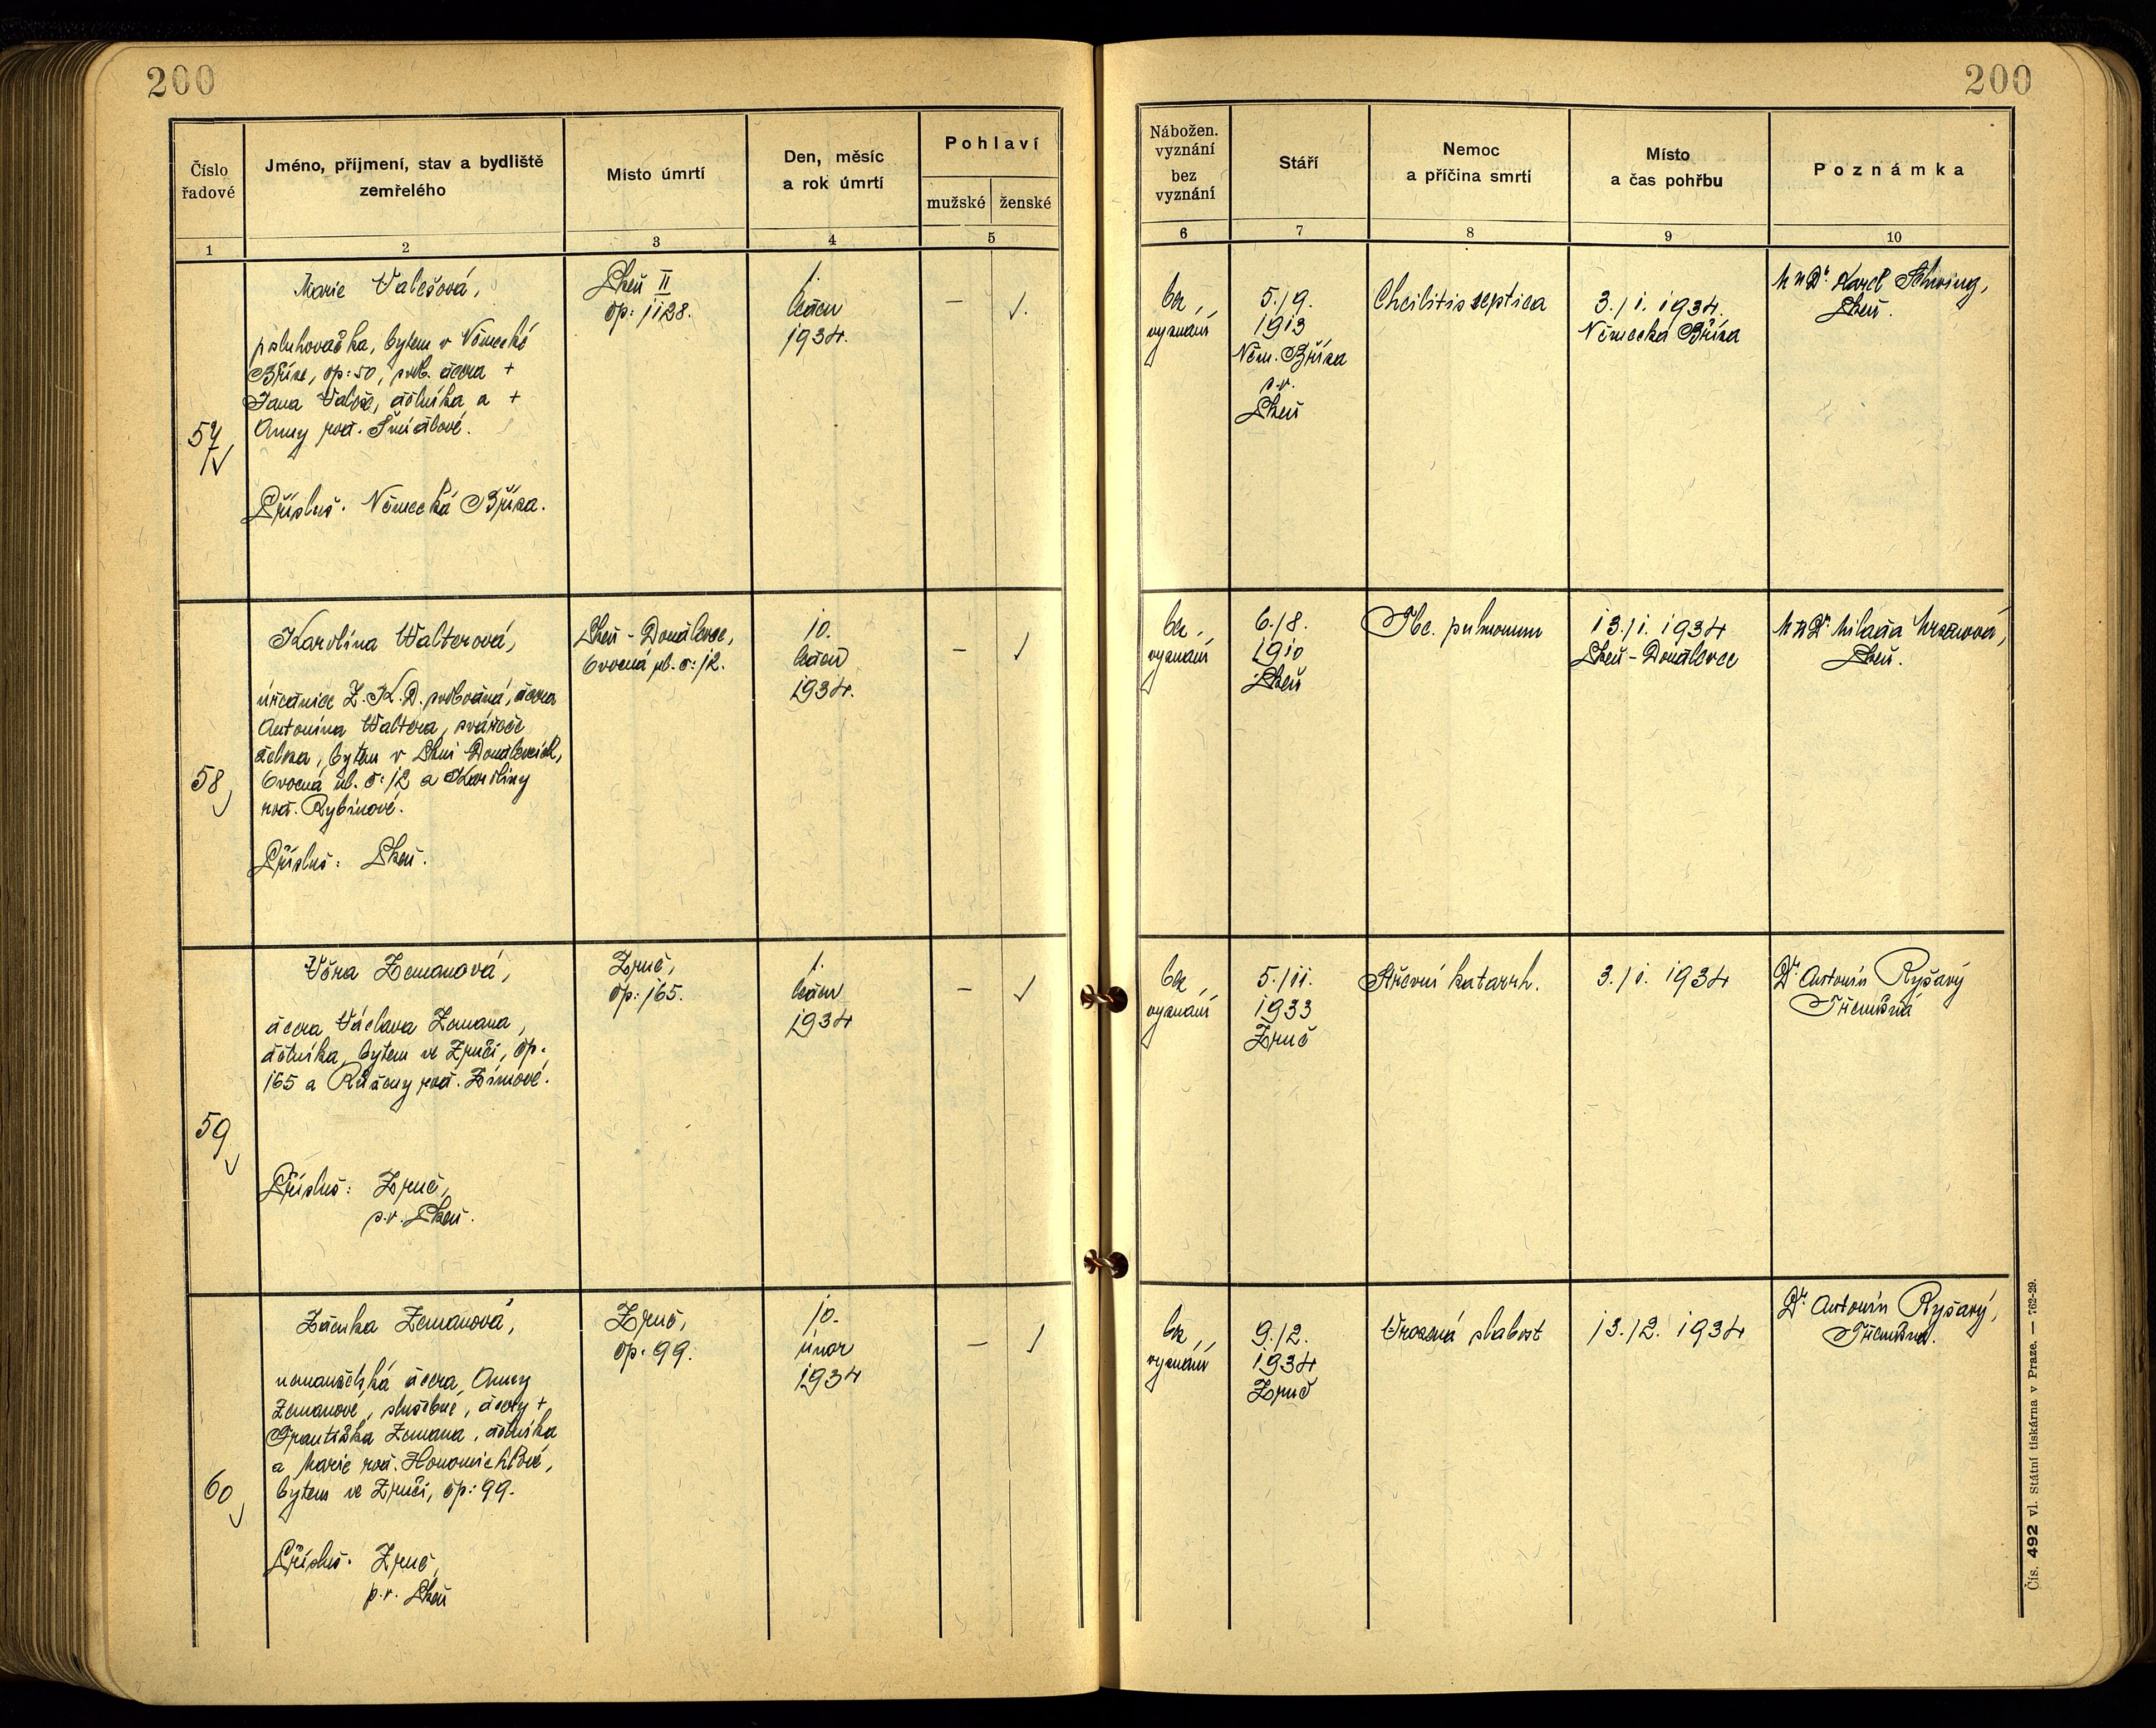 200
200
Číslo řadové
Jméno, příjmení, stav a bydliště
zemřelého
Místo úmrtí
Den, měsíc
a rok úmrtí
Pohlaví
mužské
ženské
1
2
3
4
5
Nábožen.
vyznání
bez
vyznání
Stáří
Nemoc
a příčina smrti
Místo
a čas pohřbu
Poznámka
6
7
8
9
10
57
Marie Valešová,
posluhovačka, bytem v Německé
Bříze, čp: 50, dcera +
Jana Valeše, dělníka a +
Anny roz.
Přísluš. Německá Bříza.
Plzeň II
čp: 1128.
1.
leden
1934.
–
bez
vyznání
5./9.
1913
Něm. Bříza
p.v.
Plzeň
septica
3./1. 1934.
Německá Bříza
MUDr. Karel
Plzeň.
58
Karolína Walterová,
úřednice Z.K.D. svobodná, dcera
Antonína Waltera,
bytem v Plzni Doudlevcích,
Ovocná ul. č: 12 a Karolíny
roz. Rybínové.
Přísluš: Plzeň.
Plzeň - Doudlevce,
Ovocná ul. č: 12.
10.
leden
1934.
–
bez
vyznání
6./8.
1910
Plzeň
Tbc. pulmonum
13./1. 1934
Plzeň - Doudlevce
MUDr. Milada
Plzeň.
59
Věra Zemanová,
dcera Václava Zemana,
dělníka, bytem ve Zruči, čp.
165 a Růženy roz. Zímové.
Přísluš: Zruč,
p.v. Plzeň.
Zruč,
čp: 165.
1.
leden
1934
–
bez
vyznání
5./11.
1933
Zruč
Střevní katarrh.
3./1. 1934
Dr. Antonín Ryšavý
Třemošná
60
Zdenka Zemanová,
nemanželská dcera Anny
Zemanové, služebné, dcery +
Františka Zemana, dělníka
a Marie roz. Honomichlové,
bytem ve Zruči, čp: 99.
Přísluš. Zruč,
p.v. Plzeň
Zruč,
čp: 99.
10.
únor
1934
–
bez
vyznání
9./2.
1934
Zruč
Vrozená slabost
13./2. 1934
Dr. Antonín Ryšavý,
Třemošná.
Čís. 492 vl. Státní tiskárna v Praze. — 762-29.